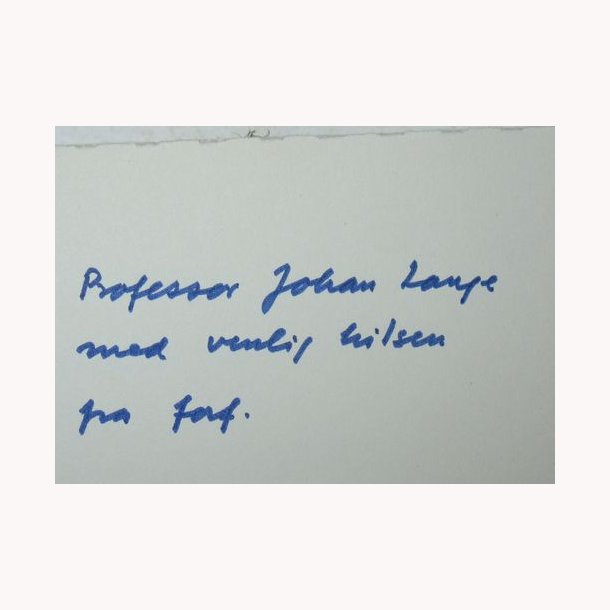 Professor Johan Lange
med venlig hilsen
fra forf.